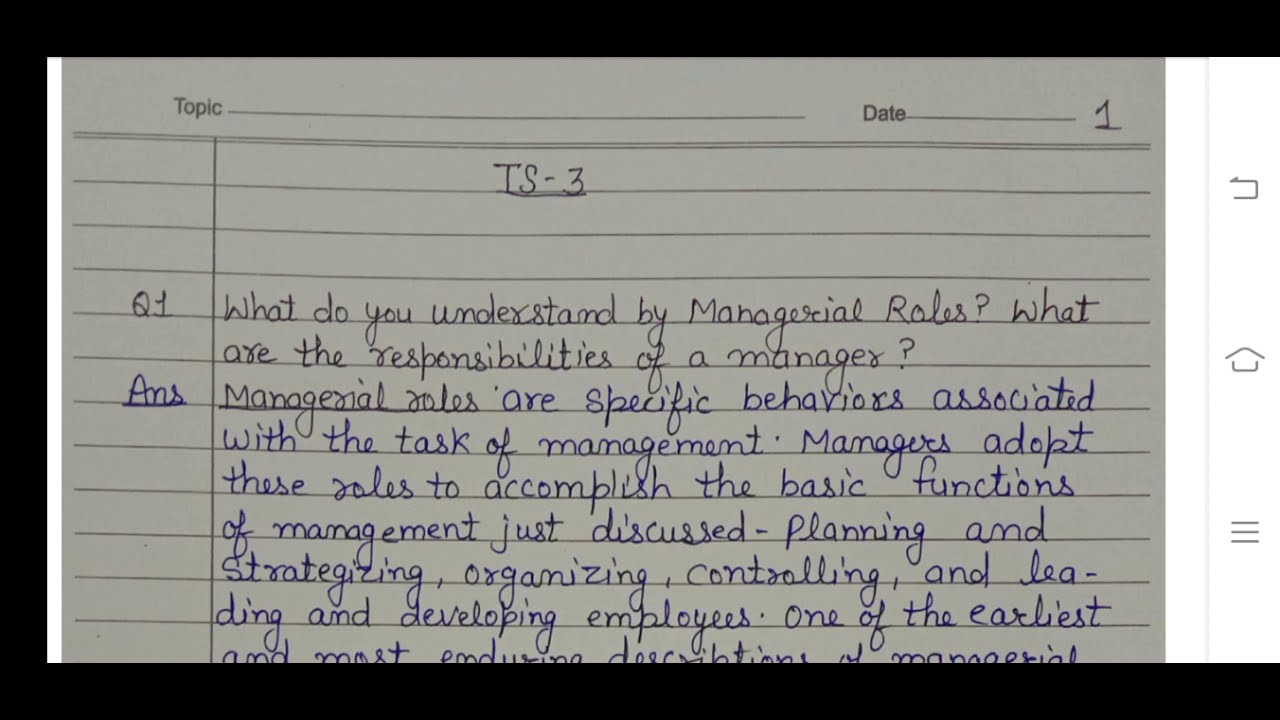 Topic
Date 1
TS-3
Q1 What do you understand by Managerial Roles? What
are the responsibilities of a manager?
Ans Managerial roles are specific behaviors associated
with the task of management. Managers adopt
these roles to accomplish the basic functions
of management just discussed - planning and
strategizing, organizing, controlling, and lea-
ding and developing employees. One of the earliest
and most enduring descriptions of managerial